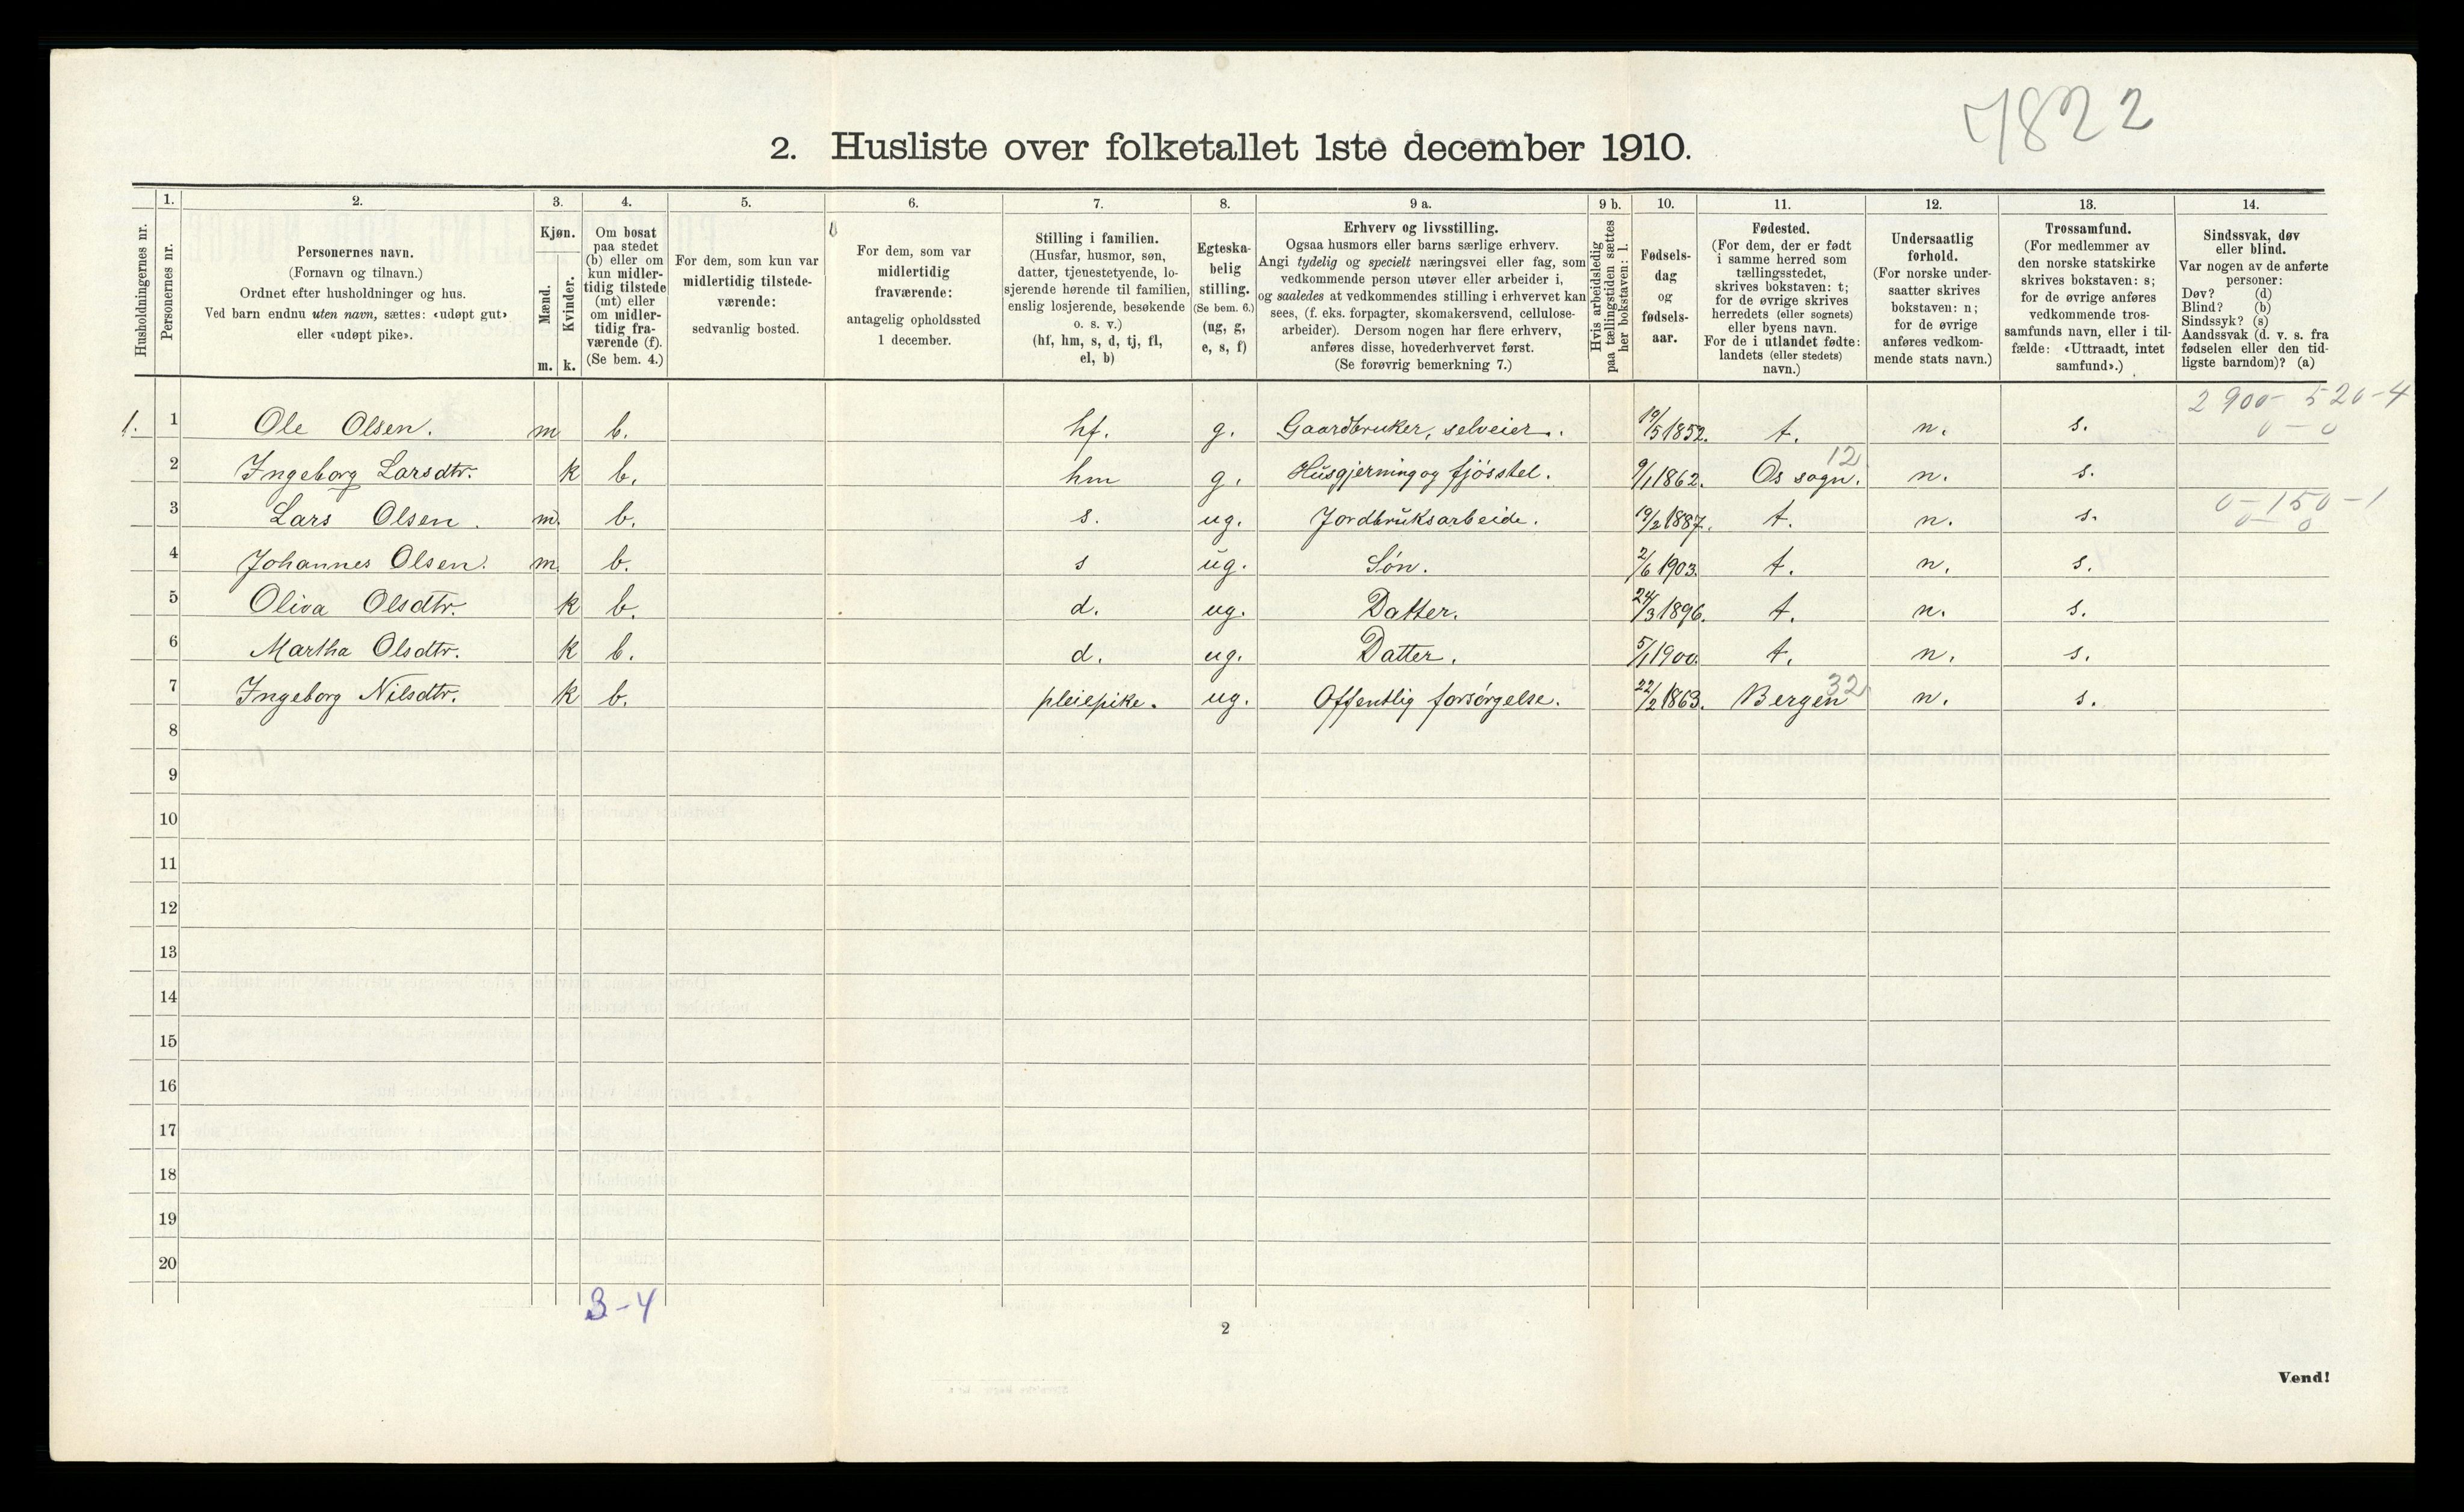 7822
2. Husliste over folketallet 1ste december 1910.
Husholdningernes nr.
1.
Personernes nr.
2.
Personernes navn.
(Fornavn og tilnavn.)
Ordnet efter husholdninger og hus.
Ved barn endnu uten navn, sættes: «udøpt gut»
eller «udøpt pike».
3.
Kjøn.
Mænd.
Kvinder.
m. k.
4.
Om bosat
paa stedet
(b) eller om
kun midler-
tidig tilstede
(mt) eller
om midler-
tidig fra-
værende (f).
(Se bem. 4.)
5.
For dem, som kun var
midlertidig tilstede-
værende:
sedvanlig bosted.
6.
For dem, som var
midlertidig
fraværende:
antagelig opholdssted
1 december.
7.
Stilling i familien.
(Husfar, husmor, søn,
datter, tjenestetyende, lo-
sjerende hørende til familien,
enslig losjerende, besøkende
o. s. v.)
(hf, hm, s, d, tj, fl,
el, b)
8.
Egteska-
belig
stilling.
(Se bem. 6.)
(ug, g,
e, s, f)
9 a.
Erhverv og livsstilling.
Ogsaa husmors eller barns særlige erhverv.
Angi tydelig og specielt næringsvei eller fag, som
vedkommende person utøver eller arbeider i,
og saaledes at vedkommendes stilling i erhvervet kan
sees, (f. eks. forpagter, skomakersvend, cellulose-
arbeider). Dersom nogen har flere erhverv,
anføres disse, hovederhvervet først.
(Se forøvrig bemerkning 7.)
9 b.
Hvis arbeidsledig
paa tællingstiden sættes
her bokstaven: l.
10.
Fødsels-
dag
og
fødsels-
aar.
11.
Fødested.
(For dem, der er født
i samme herred som
tællingsstedet,
skrives bokstaven: t;
for de øvrige skrives
herredets (eller sognets)
eller byens navn.
For de i utlandet fødte:
landets (eller stedets)
navn.)
12.
Undersaatlig
forhold.
(For norske under-
saatter skrives
bokstaven: n;
for de øvrige
anføres vedkom-
mende stats navn.)
13.
Trossamfund.
(For medlemmer av
den norske statskirke
skrives bokstaven: s;
for de øvrige anføres
vedkommende tros-
samfunds navn, eller i til-
fælde: «Uttraadt, intet
samfund».)
14.
Sindssvak, døv
eller blind.
Var nogen av de anførte
personer:
Døv? (d)
Blind? (b)
Sindssyk? (s)
Aandssvak (d. v. s. fra
fødselen eller den tid-
ligste barndom)? (a)
2 900- 520-4
1. 1 Ole Olsen. m b. hf. g. Gaardbruker, selveier. 19/5 1852. t. n. s. 0-0
12
2 Ingeborg Larsdtr. k b. hm g. Husgjerning og fjösstel. 9/1 1862. Os sogn. n. s.
0-150-1
3 Lars Olsen. m. b. s. ug. Jordbruksarbeide. 19/2 1887. t. n. s. 0-0
4 Johannes Olsen. m. b. s ug. Søn. 2/6 1903. t. n. s.
5 Oliva Olsdtr. k b. d. ug. Datter. 24/3 1896. t. n. s.
6 Martha Olsdtr. k b. d. ug. Datter. 5/1 1900. t. n. s.
32
7 Ingeborg Nilsdtr. k b. pleiepike. ug. Offentlig forsörgelse. 22/2 1863. Bergen n. s.
8
9
10
11
12
13
14
15
16
17
18
19
20
3-4
2
Vend!